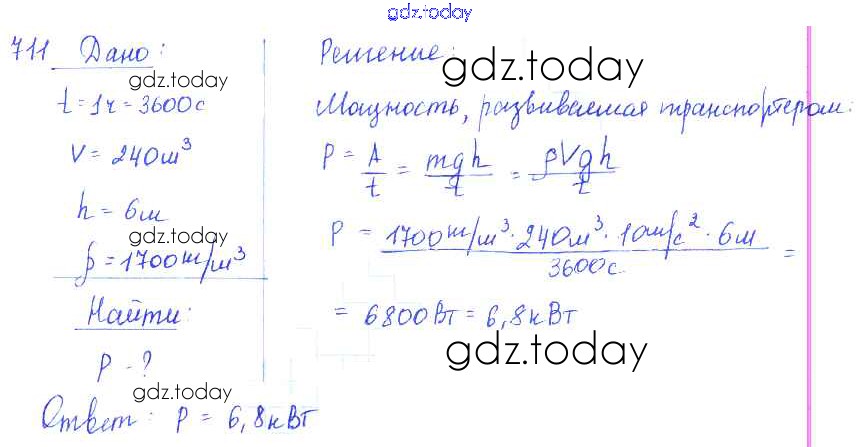 gdz.today
711 Дано:
gdz.today
t = 1ч = 3600с
V = 240м³
h = 6м
gdz.today
ρ = 1700кг/м³
Найти:
P - ?
gdz.today
Решение:
gdz.today
Мощность, развиваемая транспортером:
P = A/t = mgh/t = ρVgh/t
P = 1700кг/м³ · 240м³ · 10м/с² · 6м / 3600с =
= 6800Вт = 6,8кВт
gdz.today
Ответ: P = 6,8кВт